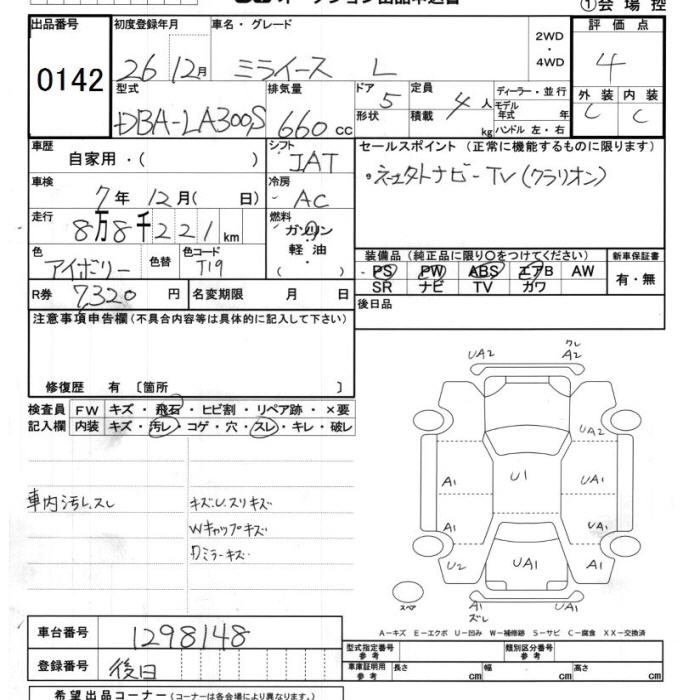 ①会場控
出品番号 初度登録年月 車名・グレード 2WD・4WD 評価点
0142 26年12月 ミライース L 4
型式 排気量 ドア 定員 ディーラー・並行 外装 内装
DBA-LA300S 660cc 5 4人 モデル年式 年 C C
形状 積載 kg ハンドル 左・右
車歴 シフト セールスポイント(正常に機能するものに限ります)
自家用・( ) IAT
車検 冷房
7年12月( 日) AC
走行 燃料
8万8千221km ガソリン
色 色替 色コード 軽油
アイボリー T19 ( )
装備品(純正品に限り〇をつけてください) 新車保証書
PS PW ABS エアB AW 有・無
SR ナビ TV カワ
R券 7,320円 名変期限 月 日 後日品
注意事項申告欄(不具合内容等は具体的に記入して下さい)
修復歴 有 〔箇所 〕
検査員 FW キズ・飛石・ヒビ割・リペア跡・×要
記入欄 内装 キズ・汚レ・コゲ・穴・スレ・キレ・破レ
車内汚レ.スレ キズU.スリキズ
Wキャップキズ
UA2 クレ A2
UA2
A1 U1 UA1
A1 UA1
U2 UA1 A1
スペア A1 ズレ UA1
A-キズ E-エクボ U-凹み W-補修跡 S-サビ C-腐食 XX-交換済
車台番号 1298148
登録番号 後日
型式指定番号 参考 類別区分番号 参考
車庫証明用 参考 長さ cm 幅 cm 高さ cm
希望出品コーナー(コーナーは各会場により異なります。)